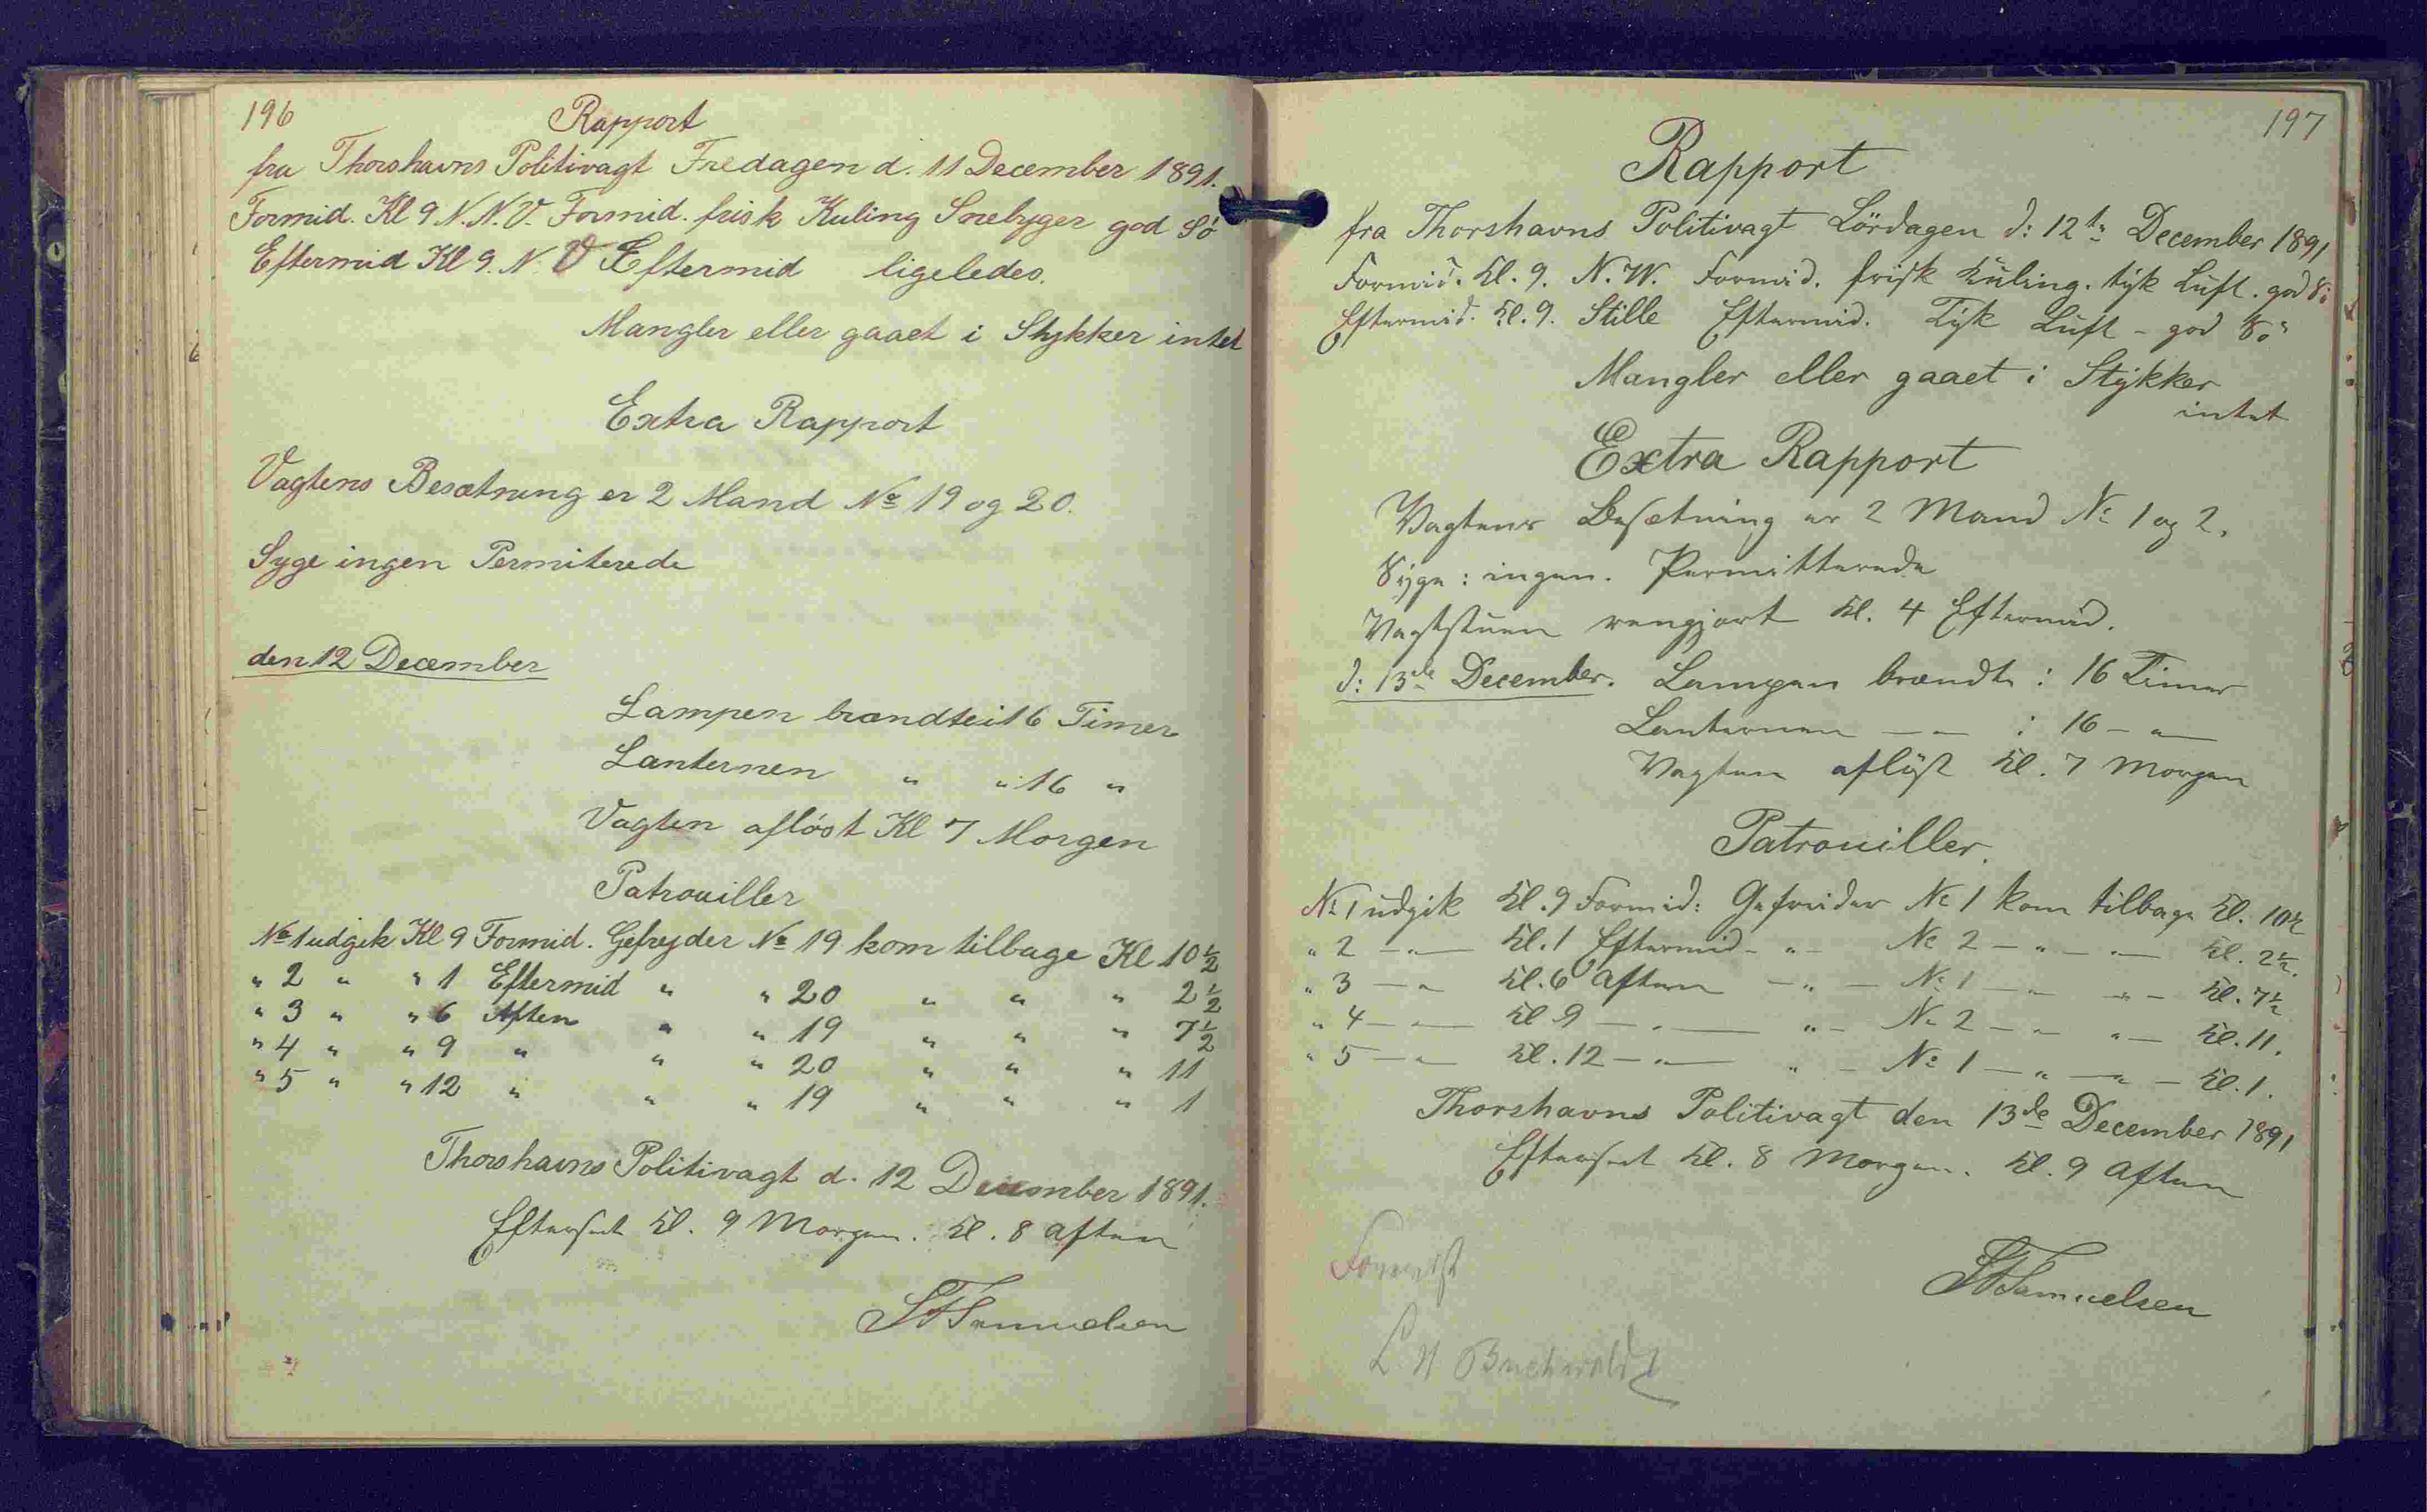 196
Rapport
fra Thorshavns Politivagt Fredagen d. 11 December 1891.
Formid. Kl 9 N.N.V. Formid. frisk Kuling Snebyger god Sö
Eftermid Kl 9. N.V Eftermid ligeledes.
Mangler eller gaaet i Stykker intet
Extra Rapport
Vagtens Besætning er 2 Mand No 19 og 20.
Syge ingen Permiterede
den 12 December
Lampen brændte i 16 Timer
Lanternen " " 16 "
Vagten afløst Kl 7 Morgen
Patrouiller
No 1 udgik Kl 9 Formid. Gefreyder No 19 kom tilbage Kl 10 1/2
" 2 " " 1 Eftermid " " 20 " " " 2 1/2
" 3 " " 6 Aften " " 19 " " " 7 1/2
" 4 " " 9 " " " 20 " " " 11
" 5 " " 12 " " " 19 " " " 1
Thorshavns Politivagt d. 12 December 1891.
Efterseet Kl. 9 Morgen. Kl. 8 Aften
Samuelsen
197
Rapport
fra Thorshavns Politivagt Lördagen d: 12te December 1891
Formid. Kl. 9. N.W. Formid. frisk Kuling. tyk Luft. god Sö
Eftermid. Kl. 9. Stille Eftermid. Tyk Luft - god Sö
Mangler eller gaaet i Stykker
intet
Extra Rapport
Vagtens Besætning er 2 Mand No 1 og 2.
Syge: ingen. Permitterede
Vagtstuen rengjort Kl. 4 Eftermid.
d: 13de December. Lampen brændte: 16 Timer
Lanternen — " — : 16 — " —
Vagten aflöst Kl. 7 Morgen
Patrouiller.
No 1 udgik Kl. 9 Formid: Gefreider No 1 kom tilbage Kl. 10 1/2
" 2 — " — Kl. 1 Eftermid - " - No 2 — " — " — Kl. 2 1/2.
" 3 — " Kl. 6 Aften — " — No 1 — " — " — Kl. 7 1/2
" 4 — " — Kl 9 — " — " — No 2 — " — " — Kl. 11.
" 5 — " Kl. 12 — " — " — No 1 — " — " — Kl. 1.
Thorshavns Politivagt den 13de December 1891
Efterseet Kl. 8 Morgen. Kl. 9 Aften
Samuelsen
Forevist
Buchwaldt